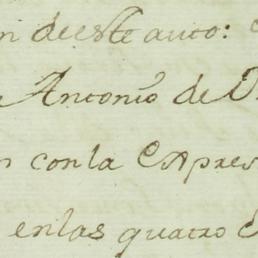 n de este auto:
Antonio de
n con la Expres
en las quatro